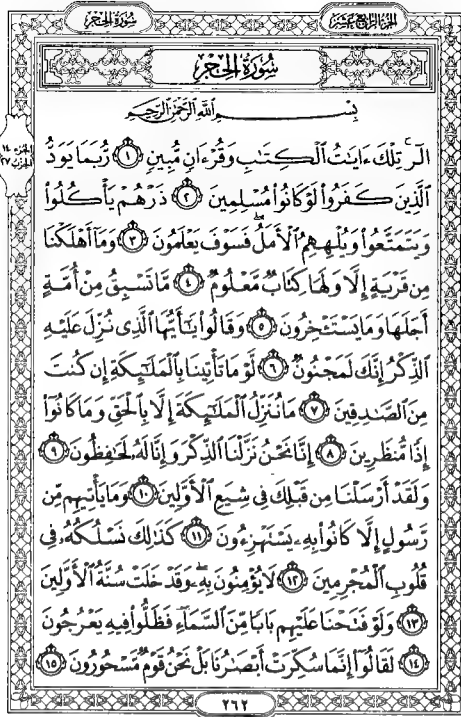 سُورَةُ الحِجْرِ
الجُزْءُ الرَّابِعَ عَشَرَ
سُورَةُ الحِجْرِ
بِسْمِ اللَّهِ الرَّحْمَٰنِ الرَّحِيمِ
الٓر ۚ تِلْكَ ءَايَٰتُ ٱلْكِتَٰبِ وَقُرْءَانٍ مُّبِينٍ ١ رُّبَمَا يَوَدُّ
ٱلَّذِينَ كَفَرُوا۟ لَوْ كَانُوا۟ مُسْلِمِينَ ٢ ذَرْهُمْ يَأْكُلُوا۟
وَيَتَمَتَّعُوا۟ وَيُلْهِهِمُ ٱلْأَمَلُ ۖ فَسَوْفَ يَعْلَمُونَ ٣ وَمَآ أَهْلَكْنَا
مِن قَرْيَةٍ إِلَّا وَلَهَا كِتَابٌ مَّعْلُومٌ ٤ مَّا تَسْبِقُ مِنْ أُمَّةٍ
أَجَلَهَا وَمَا يَسْتَـْٔخِرُونَ ٥ وَقَالُوا۟ يَٰٓأَيُّهَا ٱلَّذِى نُزِّلَ عَلَيْهِ
ٱلذِّكْرُ إِنَّكَ لَمَجْنُونٌ ٦ لَّوْ مَا تَأْتِينَا بِٱلْمَلَٰٓئِكَةِ إِن كُنتَ
مِنَ ٱلصَّٰدِقِينَ ٧ مَا نُنَزِّلُ ٱلْمَلَٰٓئِكَةَ إِلَّا بِٱلْحَقِّ وَمَا كَانُوٓا۟
إِذًا مُّنظَرِينَ ٨ إِنَّا نَحْنُ نَزَّلْنَا ٱلذِّكْرَ وَإِنَّا لَهُۥ لَحَٰفِظُونَ ٩
وَلَقَدْ أَرْسَلْنَا مِن قَبْلِكَ فِى شِيَعِ ٱلْأَوَّلِينَ ١٠ وَمَا يَأْتِيهِم مِّن
رَّسُولٍ إِلَّا كَانُوا۟ بِهِۦ يَسْتَهْزِءُونَ ١١ كَذَٰلِكَ نَسْلُكُهُۥ فِى
قُلُوبِ ٱلْمُجْرِمِينَ ١٢ لَا يُؤْمِنُونَ بِهِۦ ۖ وَقَدْ خَلَتْ سُنَّةُ ٱلْأَوَّلِينَ
١٣ وَلَوْ فَتَحْنَا عَلَيْهِم بَابًا مِّنَ ٱلسَّمَآءِ فَظَلُّوا۟ فِيهِ يَعْرُجُونَ
١٤ لَقَالُوٓا۟ إِنَّمَا سُكِّرَتْ أَبْصَٰرُنَا بَلْ نَحْنُ قَوْمٌ مَّسْحُورُونَ ١٥
الجزء ١٤
الحزب ٢٧
٢٦٢